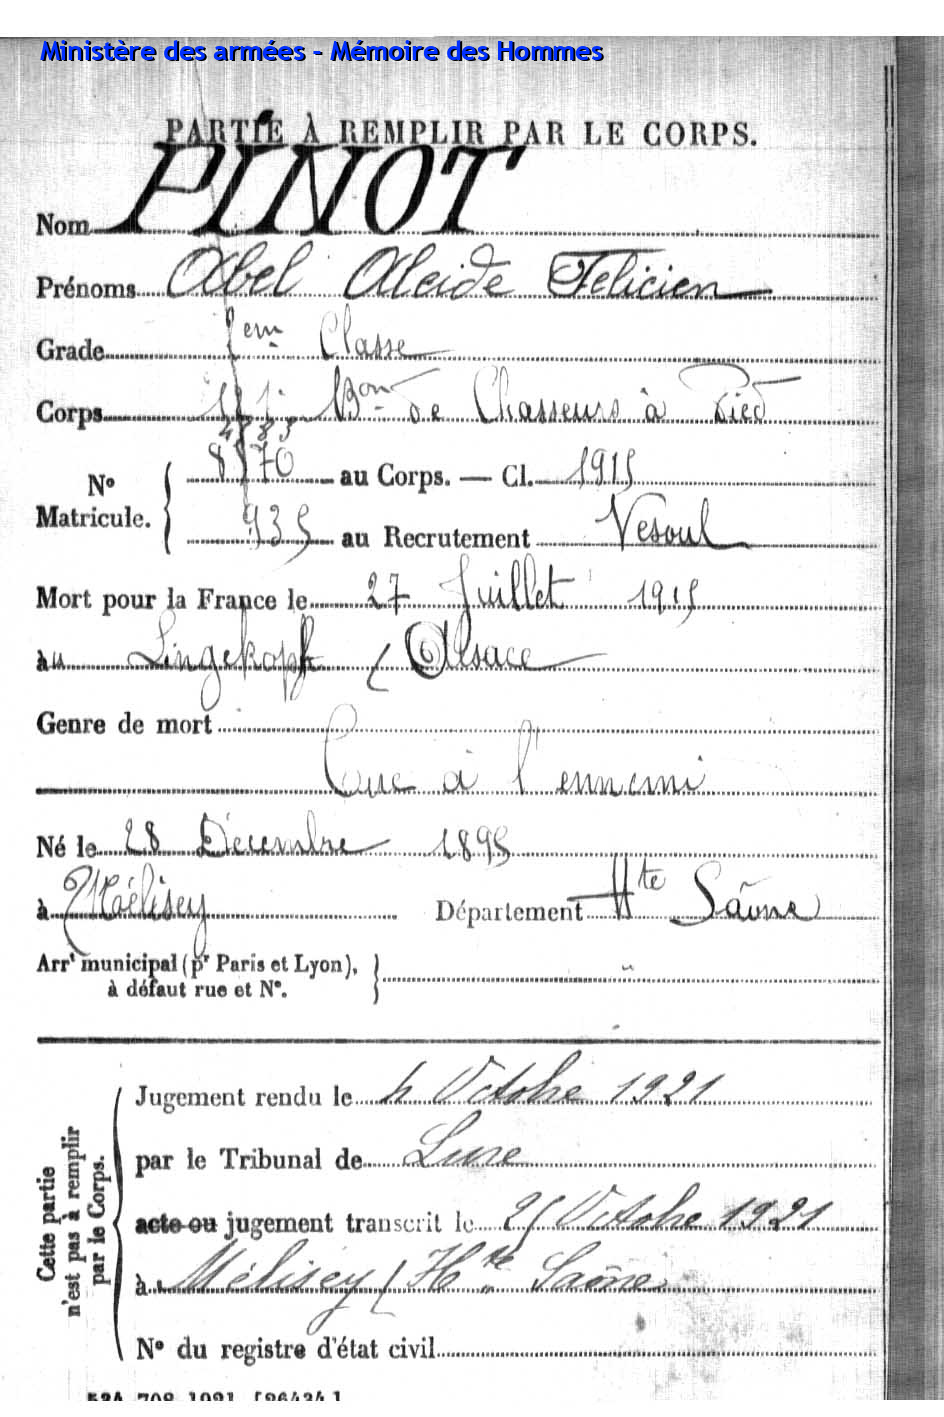 Ministère des armées - Mémoire des Hommes
PARTIE À REMPLIR PAR LE CORPS.
Nom PINOT
Prénoms Abel Alcide Felicien
Grade 2em Classe
Corps Bon de Chasseurs à Pied
4883
N° Matricule. 8570 au Corps. — Cl. 1915
935 au Recrutement Vesoul
Mort pour la France le 27 Juillet 1915
au Lingekopf (Alsace
Genre de mort
Tué à l'ennemi
Né le 28 Décembre 1895
à Mélisey Département Hte Saône
Arrt municipal (pr Paris et Lyon),
à défaut rue et N°.
Cette partie n'est pas à remplir par le Corps.
Jugement rendu le 4 Octobre 1921
par le Tribunal de Lure
acte ou jugement transcrit le 25 Octobre 1921
à Mélisey (Hte Saône
N° du registre d'état civil
534-708-1921. [26434.]